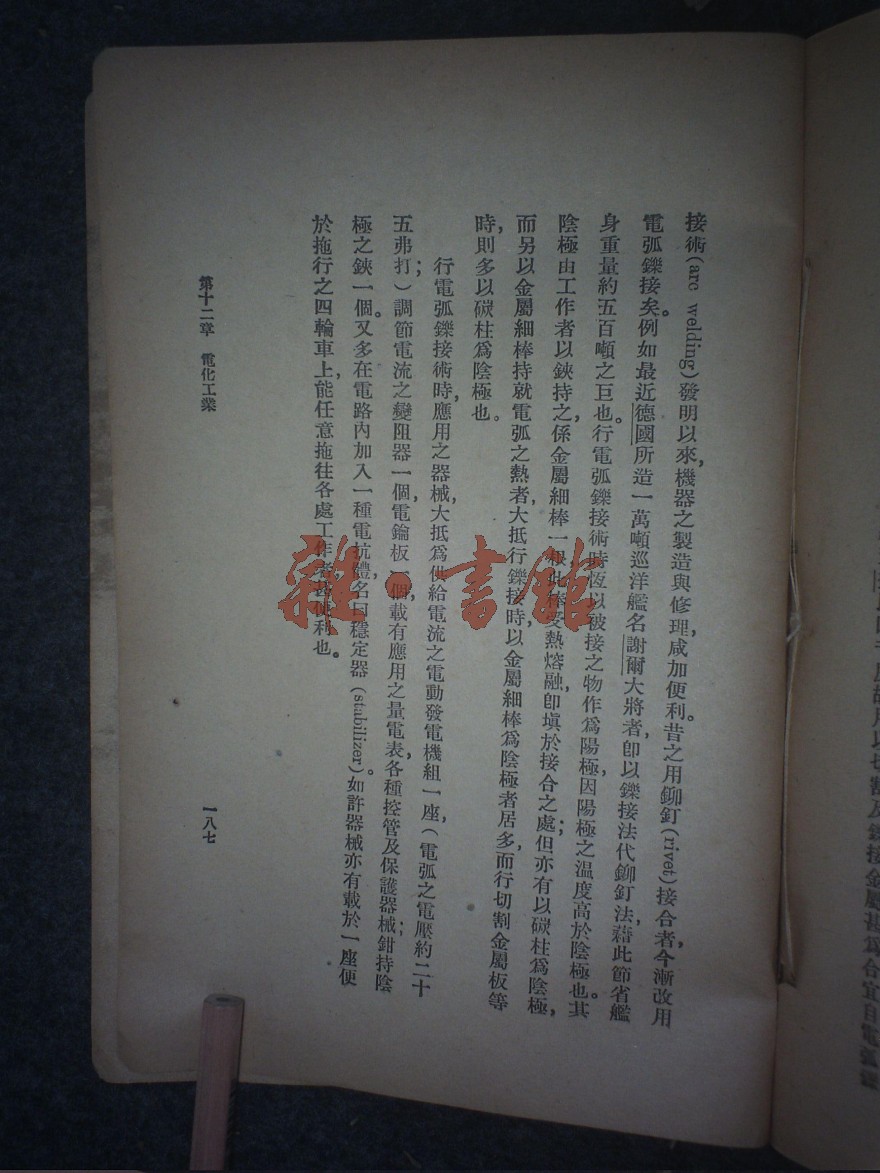 接術(arc welding)發明以來，機器之製造與修理，咸加便利。昔之用鉚釘(rivet)接合者，今漸改用
電弧鑠接矣。例如最近德國所造一萬噸巡洋艦名謝爾大將者，卽以鑠接法代鉚釘法，藉此節省艦
身重量約五百噸之巨也。行電弧鑠接術時，恆以被接之物作爲陽極，因陽極之溫度高於陰極也。其
陰極由工作者以鋏持之，係金屬細棒一根，此棒受熱熔融，卽塡於接合之處；但亦有以碳柱爲陰極，
而另以金屬細棒持就電弧之熱者，大抵行鑠接時，以金屬細棒爲陰極者居多，而行切割金屬板等
時，則多以碳柱爲陰極也。
行電弧鑠接術時，應用之器械，大抵爲供給電流之電動發電機組一座，（電弧之電壓約二十
五弗打；）調節電流之變阻器一個，電鑰板一個，載有應用之量電表，各種控管及保護器械；鉗持陰
極之鋏一個。又多在電路內加入一種電抗體，名曰穩定器(stabilizer)。如許器械，亦有載於一座便
於拖行之四輪車上，能任意拖往各處工作者，甚便利也。
第十二章　電化工業
一八七
雜·書館